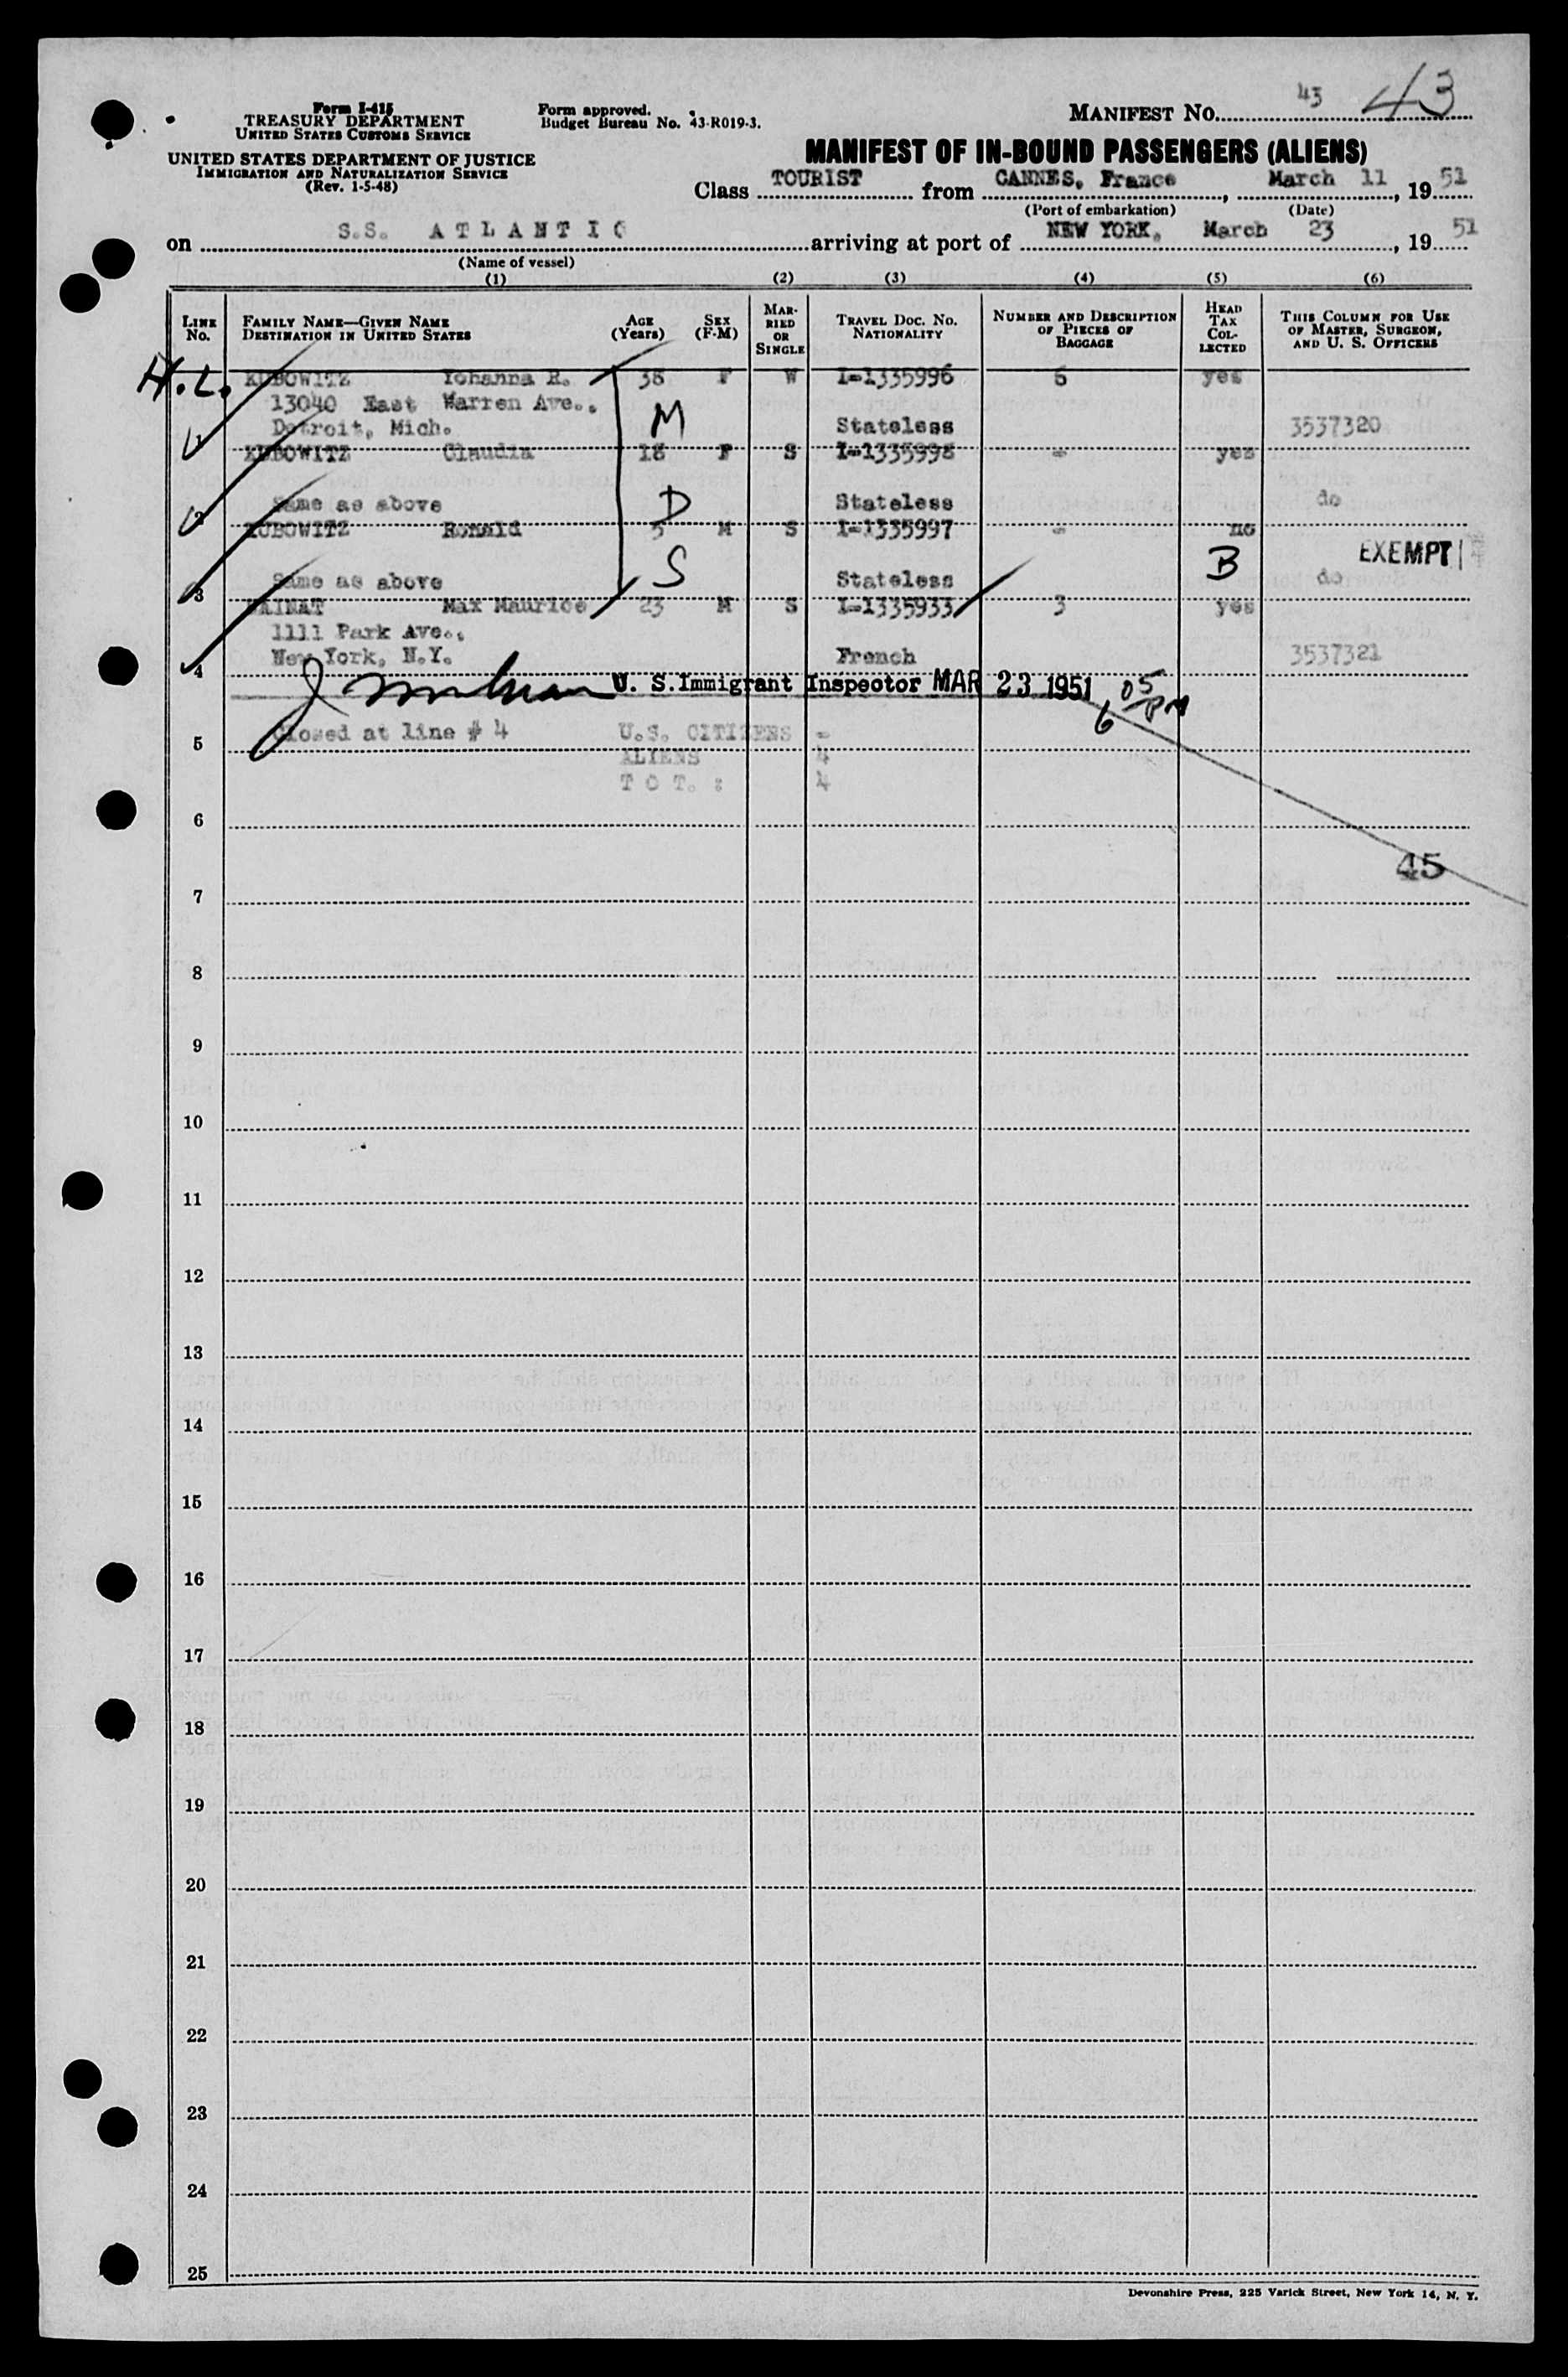 Form I-415
TREASURY DEPARTMENT
UNITED STATES CUSTOMS SERVICE
UNITED STATES DEPARTMENT OF JUSTICE
IMMIGRATION AND NATURALIZATION SERVICE
(Rev. 1-5-48)
Form approved.
Budget Bureau No. 43-R019-3.
MANIFEST NO. 43 43
MANIFEST OF IN-BOUND PASSENGERS (ALIENS)
Class TOURIST from CANNES, France, March 11, 1951
(Port of embarkation) (Date)
on S.S. ATLANTIC arriving at port of NEW YORK, March 23, 1951
(Name of vessel)
(1) (2) (3) (4) (5) (6)
LINE No. FAMILY NAME—GIVEN NAME DESTINATION IN UNITED STATES AGE (Years) SEX (F-M) MARRIED OR SINGLE TRAVEL DOC. NO. NATIONALITY NUMBER AND DESCRIPTION OF PIECES OF BAGGAGE HEAD TAX COLLECTED THIS COLUMN FOR USE OF MASTER, SURGEON, AND U. S. OFFICERS
H.L. KUBOWITZ Yohanna R. 38 F W I-1335996 6 yes
13040 East Warren Ave., M
1 Detroit, Mich. Stateless 3537320
KUBOWITZ Claudia 18 F S I-1335998 - yes
2 Same as above D Stateless do
KUBOWITZ Ronald 5 M S I-1335997 - no
B EXEMPT
3 Same as above S Stateless do
Max Maurice 23 M S I-1335933 3 yes
1111 Park Ave.,
4 New York, N.Y. French 3537321
U. S. Immigrant Inspector MAR 23 1951 6 05 PM
5 Closed at line # 4 U.S. CITIZENS -
ALIENS 4
T O T. : 4
6
45
7
8
9
10
11
12
13
14
15
16
17
18
19
20
21
22
23
24
25
Devonshire Press, 225 Varick Street, New York 14, N. Y.